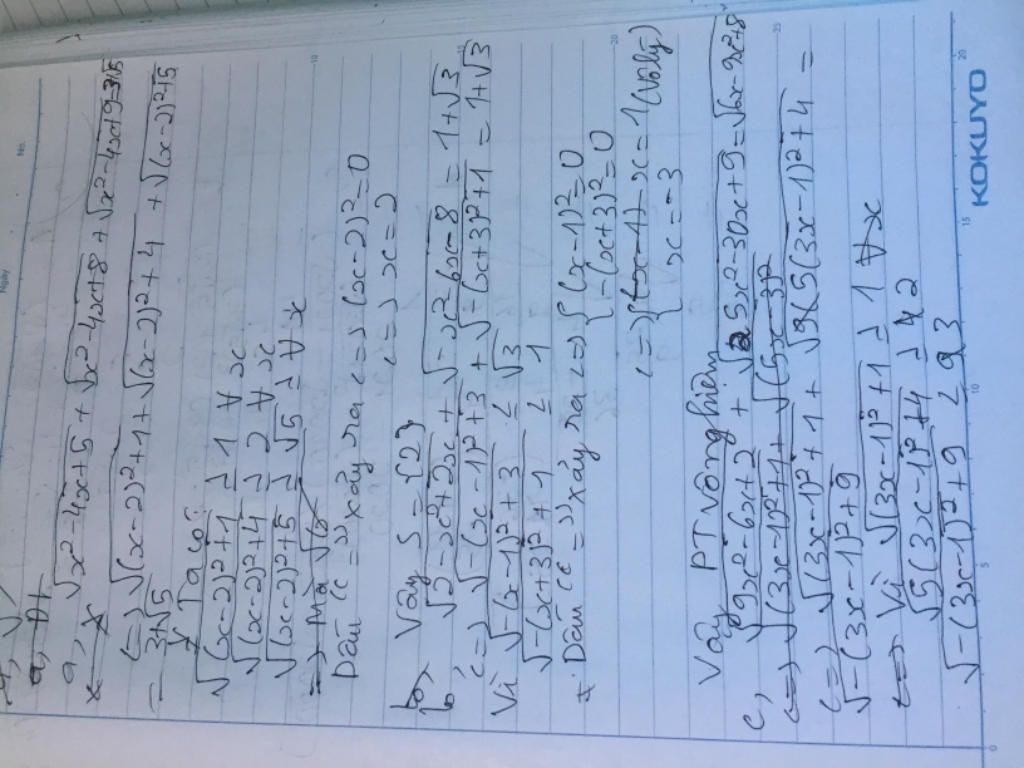 Ngày
No.
a, √(x²-4x+5) + √(x²-4x+8) + √(x²-4x+9) = 3+√5
<=> √((x-2)²+1) + √((x-2)²+4) + √((x-2)²+5)
= 3+√5
Ta có:
√((x-2)²+1) ≥ 1 ∀x
√((x-2)²+4) ≥ 2 ∀x
√((x-2)²+5) ≥ √5 ∀x
Dấu "=" xảy ra <=> (x-2)²=0
<=> x=2
Vậy S={2}
b, √(2-x²+2x) + √(-x²-6x-8) = 1+√3
<=> √(-(x-1)²+3) + √(-(x+3)²+1) = 1+√3
Vì √(-(x-1)²+3) ≤ √3
√(-(x+3)²+1) ≤ 1
Dấu "=" xảy ra <=> {(x-1)²=0
{-(x+3)²=0
<=> { x=1 (vô lý)
{ x=-3
Vậy PT vô nghiệm
c, √(9x²-6x+2) + √(45x²-30x+9) = √(6x-9x²+8)
<=> √((3x-1)²+1) + √(5(3x-1)²+4) =
√(-(3x-1)²+9)
Vì √((3x-1)²+1) ≥ 1 ∀x
√(5(3x-1)²+4) ≥ 2
√(-(3x-1)²+9) ≤ 3
5
10
15
20
KOKUYO